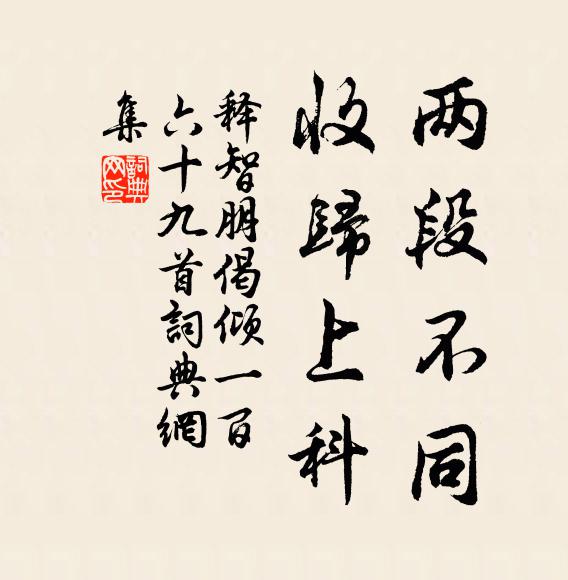 两段不同
收歸上科
释智朋偈倾一百
六十九首詞典網
集
詞典网印